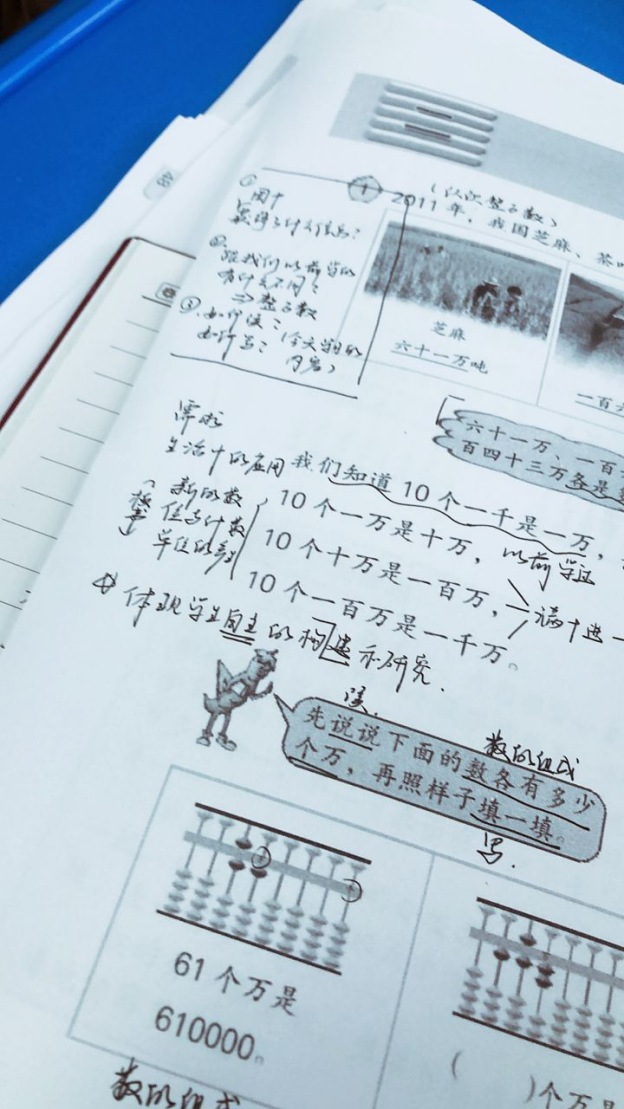 (认识整万数)
1 2011年,我国芝麻、茶
① 图中
获得了什么信息?
② 跟我们以前学的
有什么不同?
⇒整万数
③ 如何读?
如何写?(今天学的
内容)
芝麻
六十一万吨
一百六
六十一万、一百
百四十三万各是
生活中的应用
我们知道10个一千是一万,
10个一万是十万,以前学过
10个十万是一百万,满十进一
10个一百万是一千万。
新的数
位与计数
单位的
体现学生自主的构建和研究.
读.
先说说下面的数各有多少
个万,再照样子填一填。
数的组成
写.
61个万是
610000。
( )个万是
数的组成